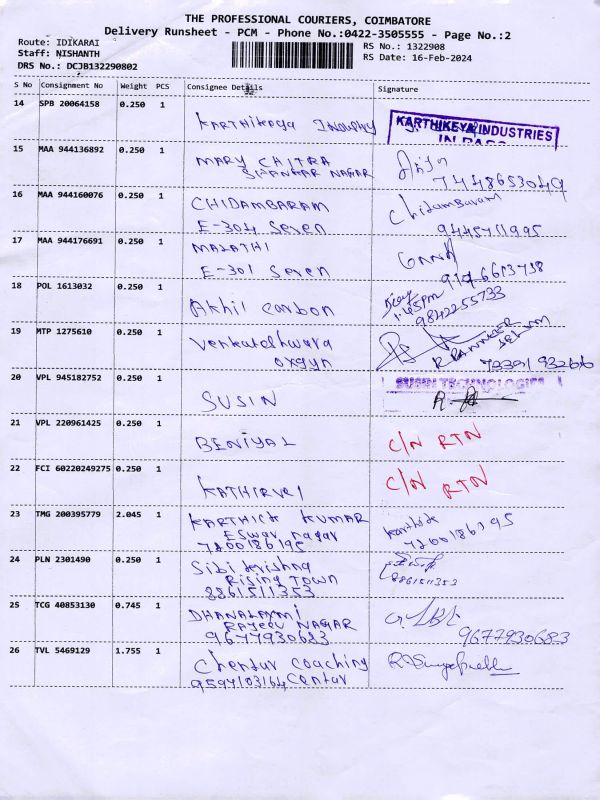 THE PROFESSIONAL COURIERS, COIMBATORE
Delivery Runsheet - PCM - Phone No.:0422-3505555 - Page No.:2
Route: IDIKARAI
RS No.: 1322908
Staff: NISHANTH
RS Date: 16-Feb-2024
DRS No.: DCJB132290802
S No Consignment No Weight PCS Consignee Details Signature
14 SPB 20064158 0.250 1
Karthikeya
KARTHIKEYA INDUSTRIES
15 MAA 944136892 0.250 1
MARY CHITRA
SHANKAR NAGAR
7448653049
16 MAA 944160076 0.250 1
CHIDAMBARAM Chidambaram
E-304 Seven 9445711995
17 MAA 944176691 0.250 1
MALATHI
E-301 Seven
18 POL 1613032 0.250 1
Akhil carbon
1.45pm
9842255733
19 MTP 1275610 0.250 1
Venkateshwara
oxgyn
20 VPL 945182752 0.250 1
SUSIN TECHNOLOGIES
SUSIN
21 VPL 220961425 0.250 1
BENIYAL C/N RTN
22 FCI 60220249275 0.250 1
KATHIRVEL C/N RTN
23 TMG 200395779 2.045 1
KARTHICK KUMAR Karthik
Eswar nagar 7200186195
7200186195
24 PLN 2301490 0.250 1
Sibi krishna
Rising Town
8861511353 8861511353
25 TCG 40853130 0.745 1
DHANALAXMI
RAJEEV NAGAR
9677930683 9677930683
26 TVL 5469129 1.755 1
Chentur coaching
9597103164 Centar